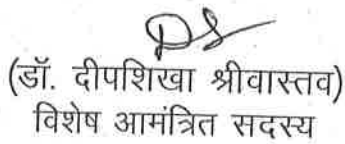 (डॉ. दीपशिखा श्रीवास्तव)
विशेष आमंत्रित सदस्य